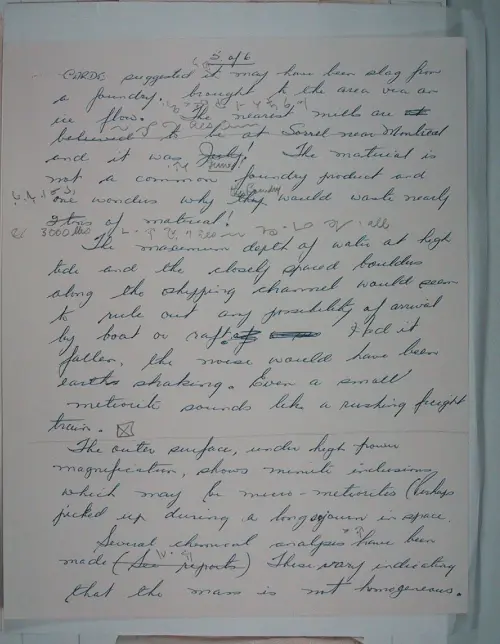 5 of 6
CARDE suggested it may have been slag from
a foundry, brought to the area via an
ice flow. The nearest mills are
believed to be at Sorel near Montreal
and it was July! The material is
not a common foundry product and
one wonders why they would waste nearly
the foundry
of material!
3000 lbs
The maximum depth of water at high
tide and the closely spaced boulders
along the shipping channel would seem
to rule out any possibility of arrival
by boat or raft. Had it
fallen, the noise would have been
earth shaking. Even a small
meteorite sounds like a rushing freight
train.
The outer surface, under high power
magnification, shows minute inclusions
which may be micro-meteorites (Perhaps
picked up during a long sojourn in space.
Several chemical analyses have been
made (See reports) These vary indicating
that the mass is not homogeneous.